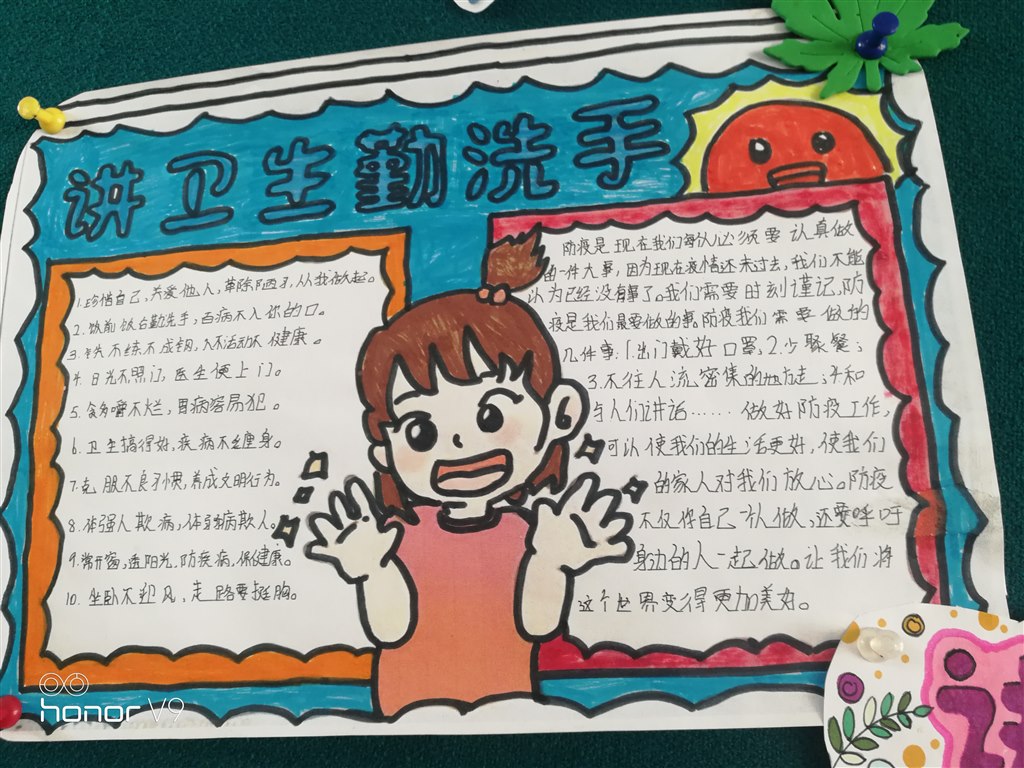 讲卫生勤洗手
1.珍惜自己,关爱他人,革除陋习,从我做起。
2.饭前饭台勤洗手,百病不入你的口。
3.铁不练不成钢,人不活动不健康。
4.日光不照门,医生便上门。
5.贪多嚼不烂,胃病容易犯。
6.卫生搞得好,疾病不纟缠身。
7.克服不良习惯,养成文明行为。
8.体强人欺病,体弱病欺人。
9.常开窗,透阳光,防疾病,保健康。
10.坐卧不迎风,走路要挺胸。
防疫是现在我们每个人必须要认真做
的一件大事,因为现在疫情还未过去,我们不能
认为已经没有事了。我们需要时刻谨记,防
疫是我们最要做的事。防疫我们需要做的
几件事:1.出门戴好口罩,2.少聚餐;
3.不往人流密集的地方走;4.和
与人们讲话……做好防疫工作,
可以使我们的生活更好,使我们
的家人对我们放心。防疫
不仅你自己一个人做,还要呼吁
身边的人一起做。让我们将
这个世界变得更加美好。
honor V9